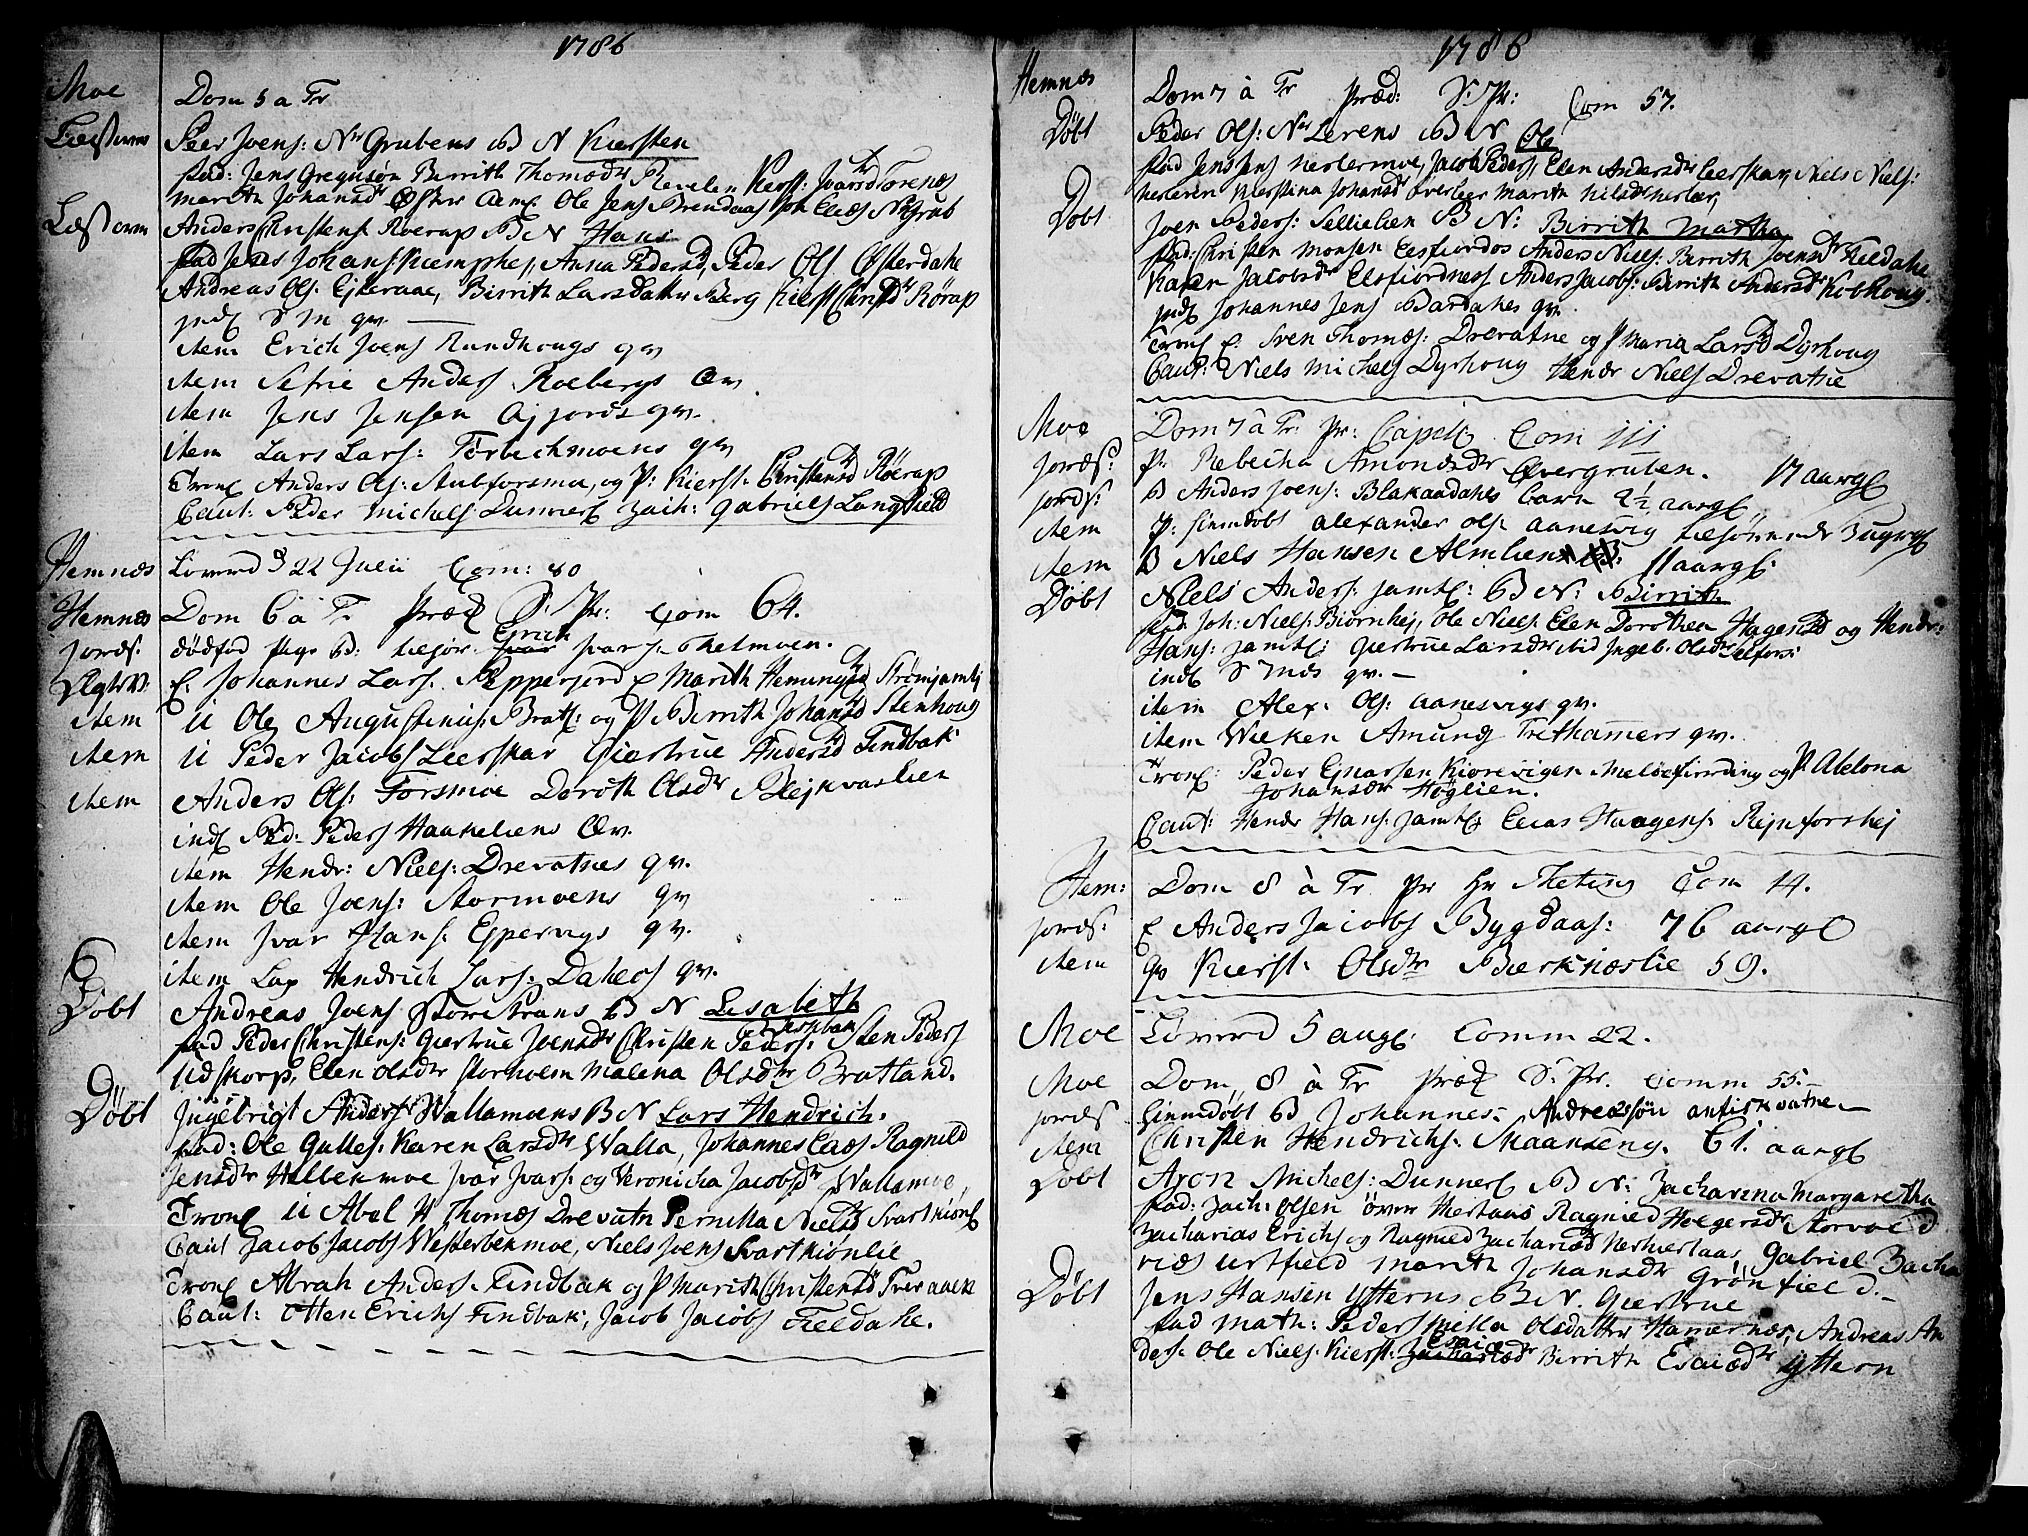 1786
Moe Dom 5 a Tr
Læst over Peer Joens: Nr Grubens B N Kiersten
fad: Jens Gregusøn Birrith Thomædr Revelen Kierst: Ivarsdr Torenes
Marith Johansdr Øfter Ole Jens Brendaas Joh Elias
Læst over Anders Christens Roerap B N Hans
fad Jens Johans Kiemphei, Anna Pedersd, Peder Ols Østerdahl
Andreas Ols: Ejteraae, Birrith Larsdatter Berg Kierst Christd Rörap
indl S M qv.
item Erich Joens Rundhougs qv
item Sefrie Anders Roebergs qv
item Jens Jensen Ajfjords qv.
item Lars Lars: Torbechmoens qv
Trol Anders Ols: Stubforsmo, og P: Kierst: Christensd Röerap
Caut: Peder Michels Dunner Zach: Gabriels Langfield
Hemnæs Löverd d 22 Julii Com: 80
Hemnæs Dom 6 a Tr Præd S: Pr: Com 64.
jords: dödfød Pige B: tilhør Erich Ivar s. Thelmoen.
Vigtv E. Johannes Lars: Pepperjord P Marith Hemingsd Strömjamtj
item U Ole Augustinus: Bratl: og P Birrith Johansd Stenhoug
item U Peder Jacobs Leerskar Giertrue Andersd Findbak
item Anders Ols: Forsmoe Doroth Olsdr Blejkvaslien
indl Ped: Peders Haukeliens qv.
item Hendr: Niels: Drevatnes qv.
item Ole Joens: Stormoens qv
item Ivar Hans: Espervigs qv.
item Lap Hendrich Lars: Dahlos qv.
Döbt Andreas Joens Storstrans B N Lisabeth
fad Peder Christens: Giertrue Joensdr Christen Peders: Sten Peders
Udskorp, Elen Olsdr Storholm Malena Olsdr Bratland.
Döbt Ingebrigt Anders: Wallamoens B N Lars Hendrich.
fad: Ole Gulles: Karen Larsdr Walla, Johannes Elias Ragnild
Jensdr Hellenmoe Ivar Ivars: og Veronicha Jacobsdr Wallamoe,
Trol U Abel Thomæs Drevatn Pernilla Nielsd Svartkiönl
Caut Jacob Jacobs Westerbekmoe, Niels Joens Svartkiönlie
Trol Abrah Anders: Findbak og P Marith Christensd Treraaen
Caut: Otten Erichs Findbak, Jacob Jacobs Fieldahl.
1786
Hemnæs Dom 7 à Tr Præd: S: Pr: Com 57.
Döbt Peder Ols: Nr Lerens B N Ole
fad Jens Jens Nerlermoe, Jacob Peders, Elen Andersdr Leerskar, Niels Niels:
Nerleren Kierstina Johansdr Överleer Marith Nilsdr Nerleer,
Döbt Joen Peders: Sellielien B N: Birrith Martha
fad: Christen Monsen Elsfiordos Anders Niels: Birrith Joensdr Fieldahl
Karen Jacobsdr Elsfiordness Anders Jacobs: Birrith Andersd Kobhoug
indl Johannes Jens Bardahls qv.
Trol E. Sven Thomæs: Drevatne og P Maria Larsd Dyrhoug
Caut: Niels Michels Dyrhoug Hendr Niels Drevatne
Moe Dom 7 à Tr: Pr: Capell: Com 111
jords: P: Rebecha Amondsdr Övergruben. 17 aargl
jords: B Anders Joens: Blakaadahls barn 2½ aargl.
item P: hiemdöbt Alexander Ols: Aanesvig tilhörende 3 ugrgl
item B Niels Hansen Almlien 11 aargl:
Döbt Niels Anders: Jamtl: B N: Birrith
fad: Joh: Niels: Biörnhej, Ole Niels: Elen Dorothea Hagensd og Hendr:
Hans: Jamtl: Giertrue Larsdr ibid Ingeb: Olsdr Selfors:
indl S Mds qv.
item Alex: Ols: Aanesvigs qv.
item Wieken Amund Trethamers qv.
Trol: Peder Ejnarsen Kiorevigen Melöefierding og P Alelona
Johansdr Höglien.
Caut: Hendr Hans: Jamtl: Elias Haagens: Rejnforshej
Hem: Dom 8 à Tr Pr Hr Meting Com 14.
jords: E Anders Jacobs Bygdaas: 76 aargl
item Qv Kierst: Olsdr Bierknæslie 59.
Moe Löverd 5 augl: Comm 22.
Moe Dom, 8 à Tr Præd S: Pr. Comm 55.
jords hiemdöbt B Johannes: Andreassön Anfiskvatne
item Christen Hendrichs: Skaanseng. 61. aargl
Döbt Aron Michels: Dunner: B N: Zacharina Margaretha
fad: Zach: Olsen Över Hertaas Ragnild Holgersdr Storvold
Zacharias Erichs og Ragnild Zachariæd Nerhertaas, Gabriel Zacha
riæs Urtfield Marith Johansdr Grönfield.
Döbt Jens Hansen Ytterns B N. Giertrue
fad Math: Peders Pella Olsdatter Hamernæs, Andreas An
ders: Ole Niels: Kierst: Esaiæ Zachariædr Birrith Esaiædr Yttern